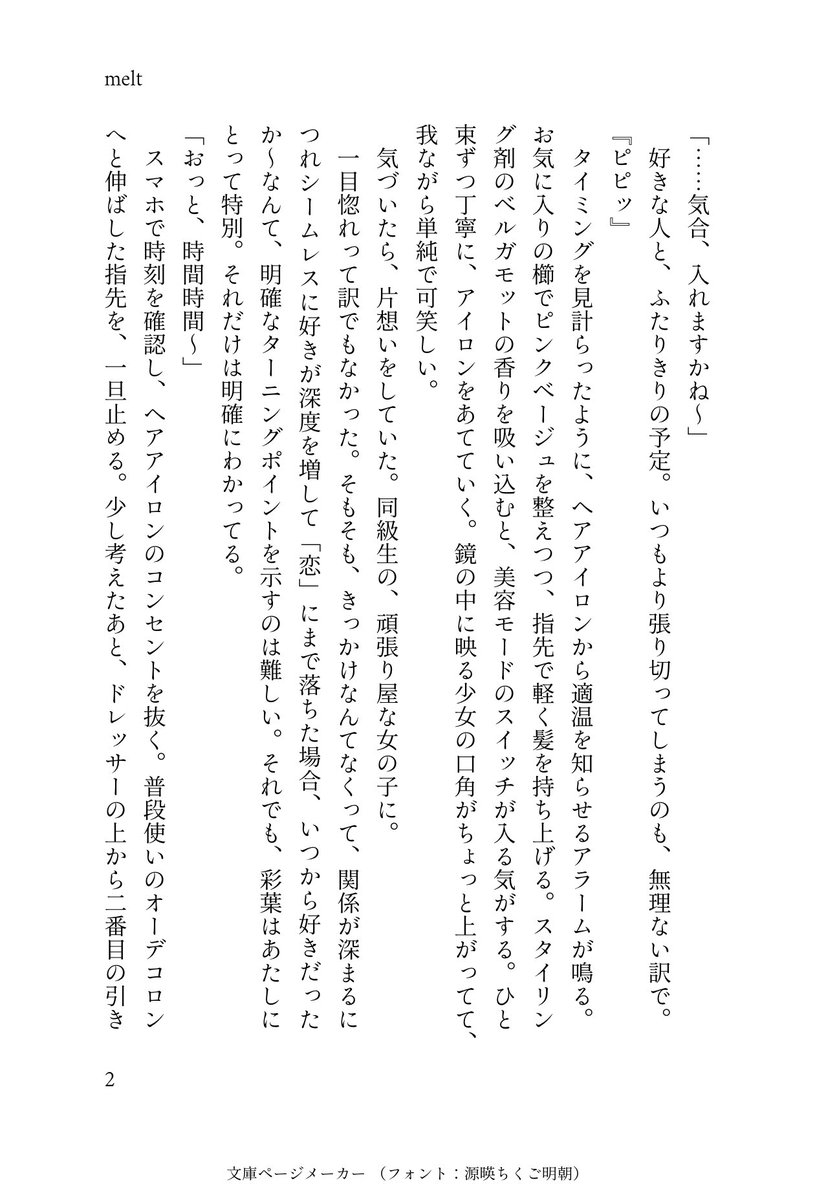 melt
「……気合、入れますかね～」
好きな人と、ふたりきりの予定。いつもより張り切ってしまうのも、無理ない訳で。
『ピピッ』
タイミングを見計らったように、ヘアアイロンから適温を知らせるアラームが鳴る。
お気に入りの櫛でピンクベージュを整えつつ、指先で軽く髪を持ち上げる。スタイリン
グ剤のベルガモットの香りを吸い込むと、美容モードのスイッチが入る気がする。ひと
束ずつ丁寧に、アイロンをあてていく。鏡の中に映る少女の口角がちょっと上がってて、
我ながら単純で可笑しい。
気づいたら、片想いをしていた。同級生の、頑張り屋な女の子に。
一目惚れって訳でもなかった。そもそも、きっかけなんてなくって、関係が深まるに
つれシームレスに好きが深度を増して「恋」にまで落ちた場合、いつから好きだった
か～なんて、明確なターニングポイントを示すのは難しい。それでも、彩葉はあたしに
とって特別。それだけは明確にわかってる。
「おっと、時間時間～」
スマホで時刻を確認し、ヘアアイロンのコンセントを抜く。普段使いのオーデコロン
へと伸ばした指先を、一旦止める。少し考えたあと、ドレッサーの上から二番目の引き
2
文庫ページメーカー（フォント：源暎ちくご明朝）